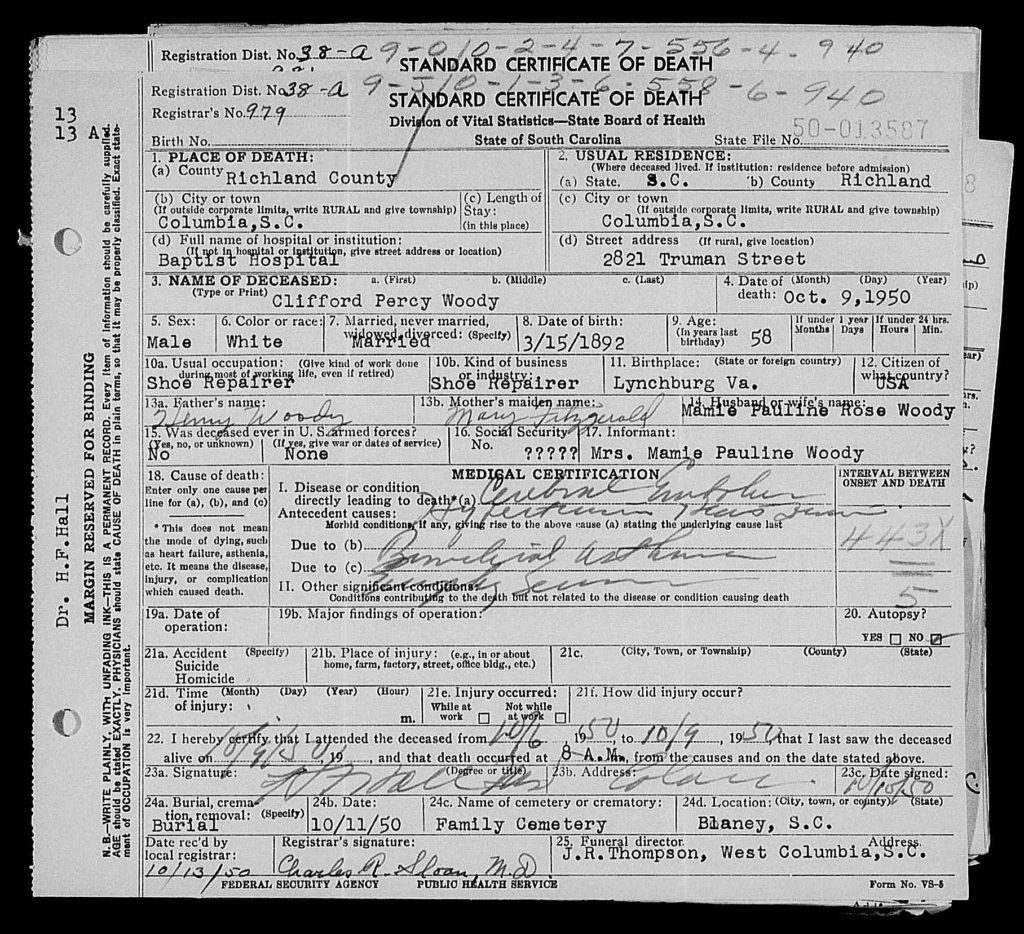 Registration Dist. No. 38-a 9-010-2-4-7-556-4-940
STANDARD CERTIFICATE OF DEATH
Registration Dist. No. 38-a 9-510-1-3-6-558-6-940
STANDARD CERTIFICATE OF DEATH
Registrar's No. 979
Division of Vital Statistics—State Board of Health
Birth No. State of South Carolina State File No. 50-013587
1. PLACE OF DEATH: 2. USUAL RESIDENCE:
(Where deceased lived. If institution: residence before admission)
(a) County Richland County (a) State, S.C. (b) County Richland
(b) City or town (c) Length of Stay: (in this place) (c) City or town
(If outside corporate limits, write RURAL and give township) (If outside corporate limits, write RURAL and give township)
Columbia,S.C. Columbia,S.C.
(d) Full name of hospital or institution: (d) Street address (If rural, give location)
(If not in hospital or institution, give street address or location)
Baptist Hospital 2821 Truman Street
3. NAME OF DECEASED: a. (First) b. (Middle) c. (Last) 4. Date of (Month) (Day) (Year)
(Type or Print) Clifford Percy Woody death: Oct. 9,1950
5. Sex: 6. Color or race: 7. Married, never married, widowed, divorced: (Specify) 8. Date of birth: 9. Age: (In years last birthday) 58 If under 1 year Months Days If under 24 hrs. Hours Min.
Male White Married 3/15/1892
10a. Usual occupation: (Give kind of work done during most of working life, even if retired) 10b. Kind of business or industry: 11. Birthplace: (State or foreign country) 12. Citizen of what country?
Shoe Repairer Shoe Repairer Lynchburg Va. USA
13a. Father's name: 13b. Mother's maiden name: 14. Husband or wife's name:
Henry Woody Mary Fitzgerald Mamie Pauline Rose Woody
15. Was deceased ever in U. S. armed forces? 16. Social Security No. 17. Informant:
(Yes, no, or unknown) (If yes, give war or dates of service)
No None ????? Mrs. Mamie Pauline Woody
18. Cause of death: MEDICAL CERTIFICATION INTERVAL BETWEEN ONSET AND DEATH
Enter only one cause per line for (a), (b), and (c)
I. Disease or condition directly leading to death*(a) Cerebral
Antecedent causes:
Morbid conditions, if any, giving rise to the above cause (a) stating the underlying cause last
* This does not mean the mode of dying, such as heart failure, asthenia, etc. It means the disease, injury, or complication which caused death.
Due to (b) 443X
Due to (c) Bronchial Asthma
II. Other significant conditions: 5
Conditions contributing to the death but not related to the disease or condition causing death
19a. Date of operation: 19b. Major findings of operation: 20. Autopsy?
YES NO
21a. Accident Suicide Homicide (Specify) 21b. Place of injury: (e.g., in or about home, farm, factory, street, office bldg., etc.) 21c. (City, Town, or Township) (County) (State)
21d. Time of injury: (Month) (Day) (Year) (Hour) m. 21e. Injury occurred: While at work Not while at work 21f. How did injury occur?
22. I hereby certify that I attended the deceased from 10/6, 1950, to 10/9, 1950, that I last saw the deceased
alive on 10/9/50, 19, and that death occurred at 8 A.M., from the causes and on the date stated above.
23a. Signature: (Degree or title) 23b. Address: 23c. Date signed:
10/10/50
24a. Burial, cremation, removal: (Specify) 24b. Date: 24c. Name of cemetery or crematory: 24d. Location: (City, town, or county) (State)
Burial 10/11/50 Family Cemetery Blaney, S.C.
Date rec'd by local registrar: Registrar's signature: 25. Funeral director Address.
10/13/50 Charles R. Sloan, M.D. J.R.Thompson, West Columbia,S.C.
FEDERAL SECURITY AGENCY PUBLIC HEALTH SERVICE Form No. VS-5
13
13 A
Dr. H.F.Hall
MARGIN RESERVED FOR BINDING
N. B.—WRITE PLAINLY, WITH UNFADING INK—THIS IS A PERMANENT RECORD. Every item of information should be carefully supplied.
AGE should be stated EXACTLY. PHYSICIANS should state CAUSE OF DEATH in plain terms, so that it may be properly classified. Exact statement of OCCUPATION is very important.